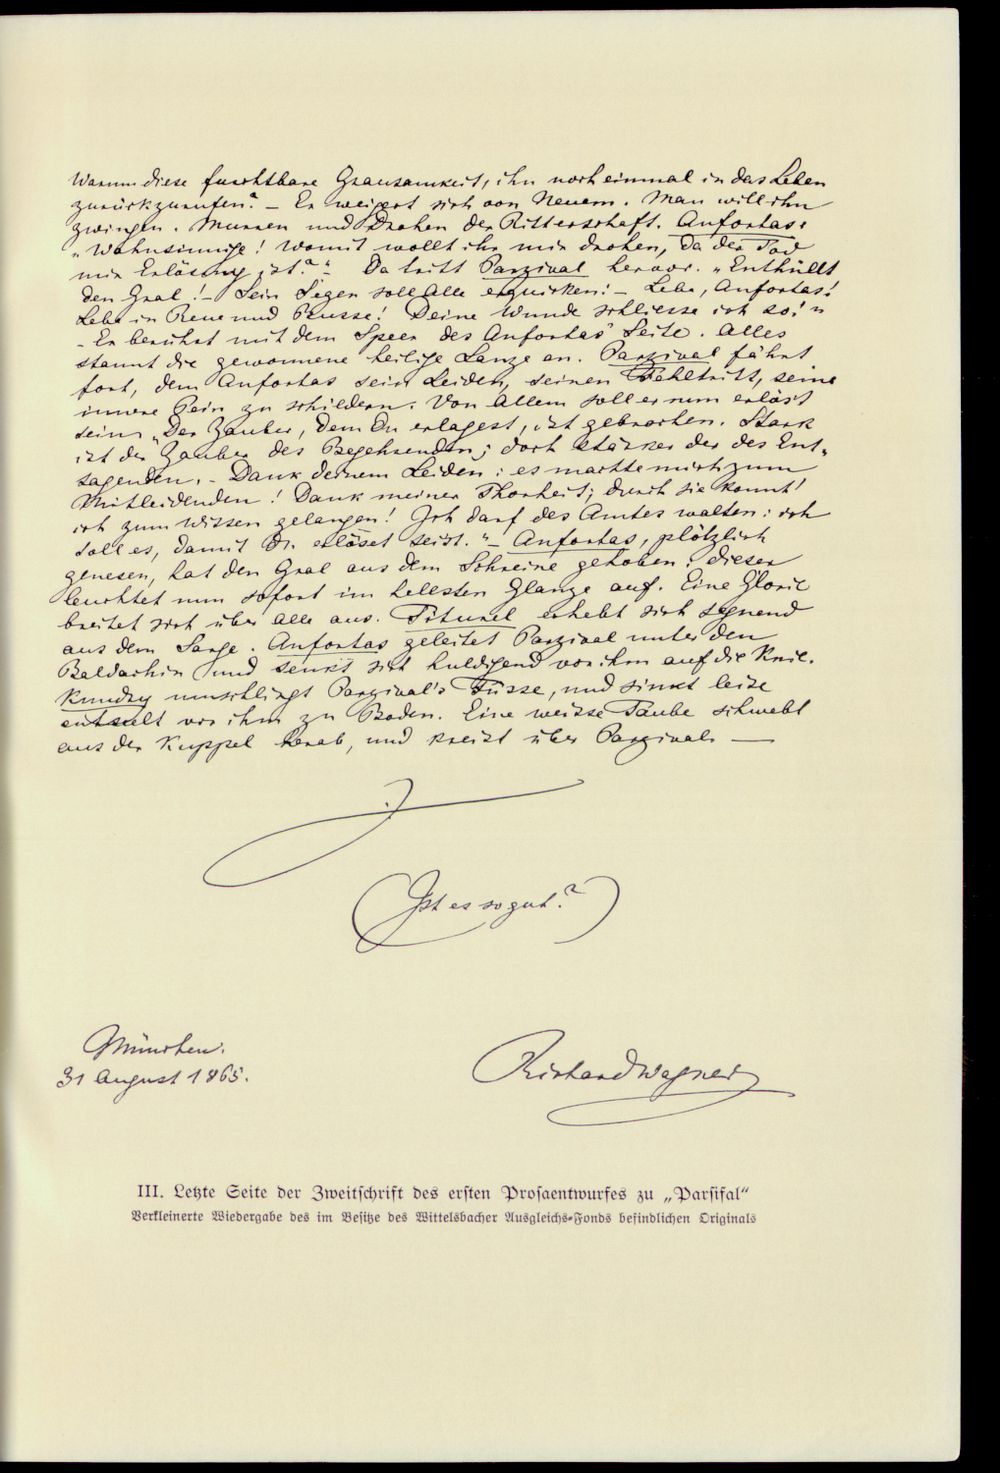 Warum diese furchtbare Grausamkeit, ihn noch einmal in das Leben
zurückzurufen? – Er weigert sich von Neuem. Man will ihn
zwingen. Murren und Drohen der Ritterschaft. Anfortas:
„Wahnsinnige! Womit wollt ihr mir drohen, da der Tod
mir Erlösung ist?“ Da tritt Parzival hervor. „Enthüllt
den Gral! – Sein Segen soll Alle erquicken! – Lebe, Anfortas!
Lebe in Reue und Busse! Deine Wunde schliesse ich so!“
– Er berührt mit dem Speer des Anfortas' Seite. Alles
staunt die gewonnene heilige Lanze an. Parzival fährt
fort, dem Anfortas sein Leiden, seinen Fehltritt, seine
innere Pein zu schildern. Von Allem soll er nun erlöst
sein. „Der Zauber, dem Du erlagest, ist gebrochen. Stark
ist der Zauber des Begehrenden; doch stärker der des Ent-
sagenden. – Dank deinem Leiden: es machte mich zum
Mitleidenden! Dank meiner Thorheit; durch sie konnt'
ich zum Wissen gelangen! Ich darf des Amtes walten: ich
soll es, damit Du erlöset seist.“ – Anfortas, plötzlich
genesen, hat den Gral aus dem Schreine gehoben: dieser
leuchtet nun sofort im hellesten Glanze auf. Eine Glorie
breitet sich über Alle aus. Titurel erhebt sich segnend
aus dem Sarge. Anfortas geleitet Parzival unter den
Baldachin und senkt sich huldigend vor ihm auf die Knie.
Kundry umschlingt Parzival's Füsse, und sinkt leise
entseelt vor ihm zu Boden. Eine weisse Taube schwebt
aus der Kuppel herab, und kreist über Parzival. —
(Ist es so gut?)
München.
31 August 1865.
Richard Wagner
III. Letzte Seite der Zweitschrift des ersten Prosaentwurfes zu „Parsifal“
Verkleinerte Wiedergabe des im Besitze des Wittelsbacher Ausgleichs-Fonds befindlichen Originals